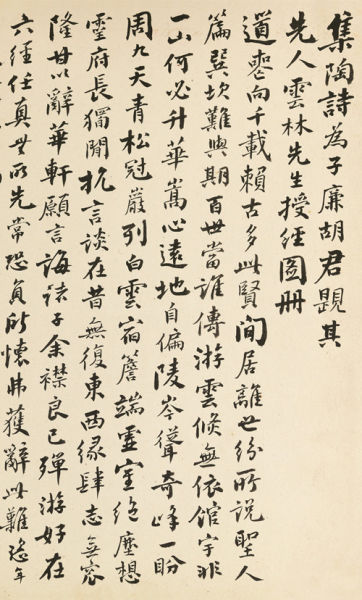 集陶詩為子廉胡君題其
先人雲林先生授經圖冊
道喪向千載賴古多此賢閒居離世紛所說聖人
篇巽坎難與期百世當誰傳游雲倏無依館宇非
一山何必升華嵩心遠地自偏陵岑聳奇峰一盼
周九天青松冠巖列白雲宿簷端靈室絕塵想
靈府長獨閒抗言談在昔無復東西緣肆志無窊
隆甘以辭華軒願言誨諸子余襟良已殫游好在
六經任真無所先常恐負所懷弗獲辭此難總年